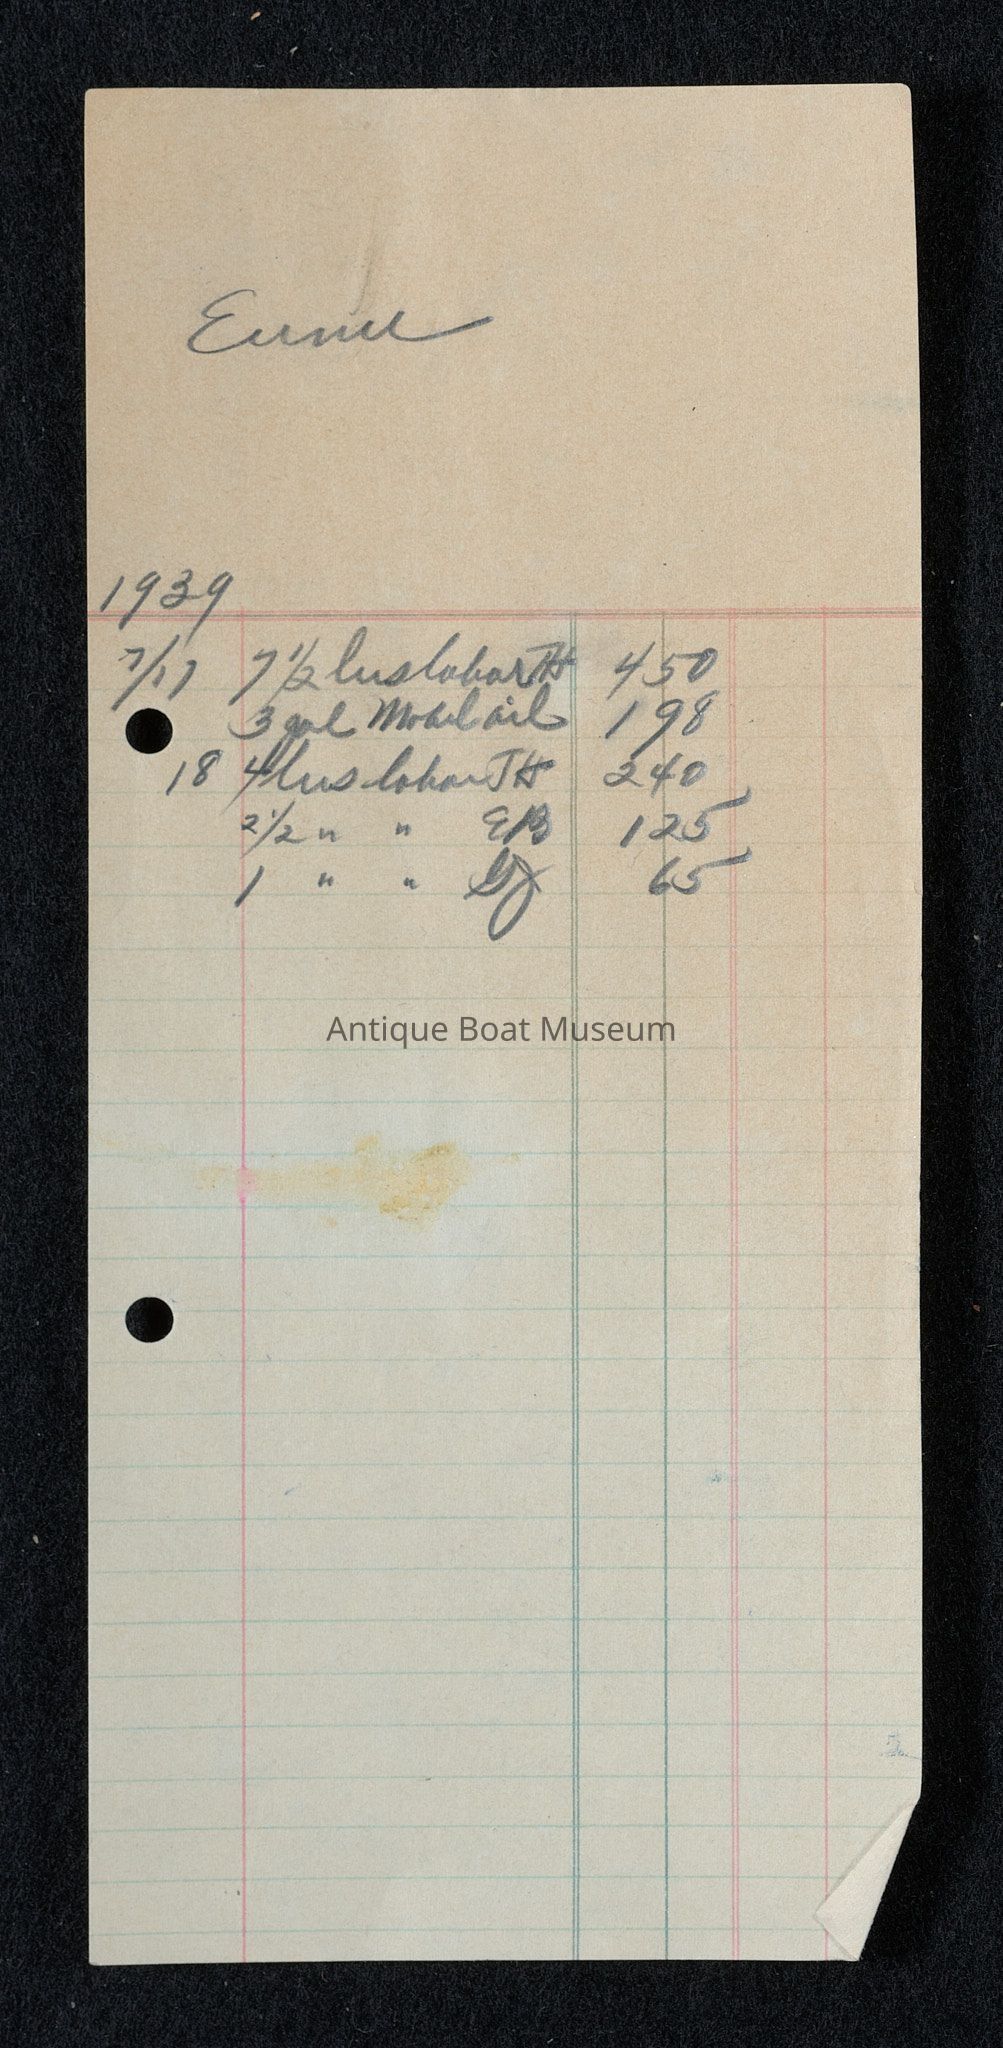 Ernie
1939
7/17 7 1/2 hrs labor TH 4 50
3 gal Mobil oil 1 98
18 4 hrs labor TH 2 40
2 1/2 " " EB 1 25
1 " " GJ 65
Antique Boat Museum